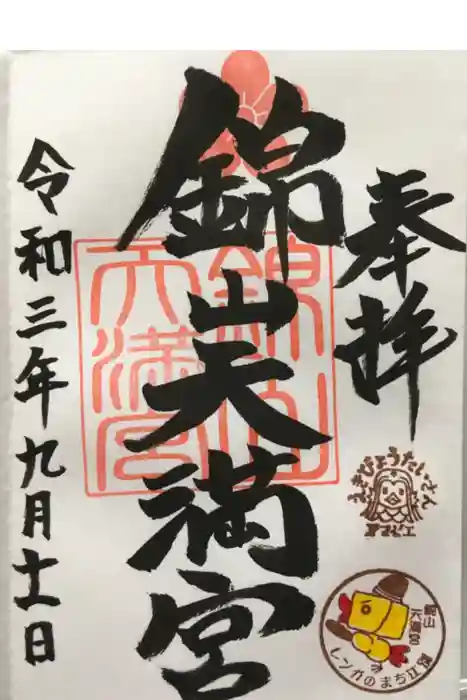 奉拝
錦山天満宮
令和三年九月十一日
錦山
天満宮
えきびょうたいさん
アマビエ
錦山
天満宮
レンガのまち江別